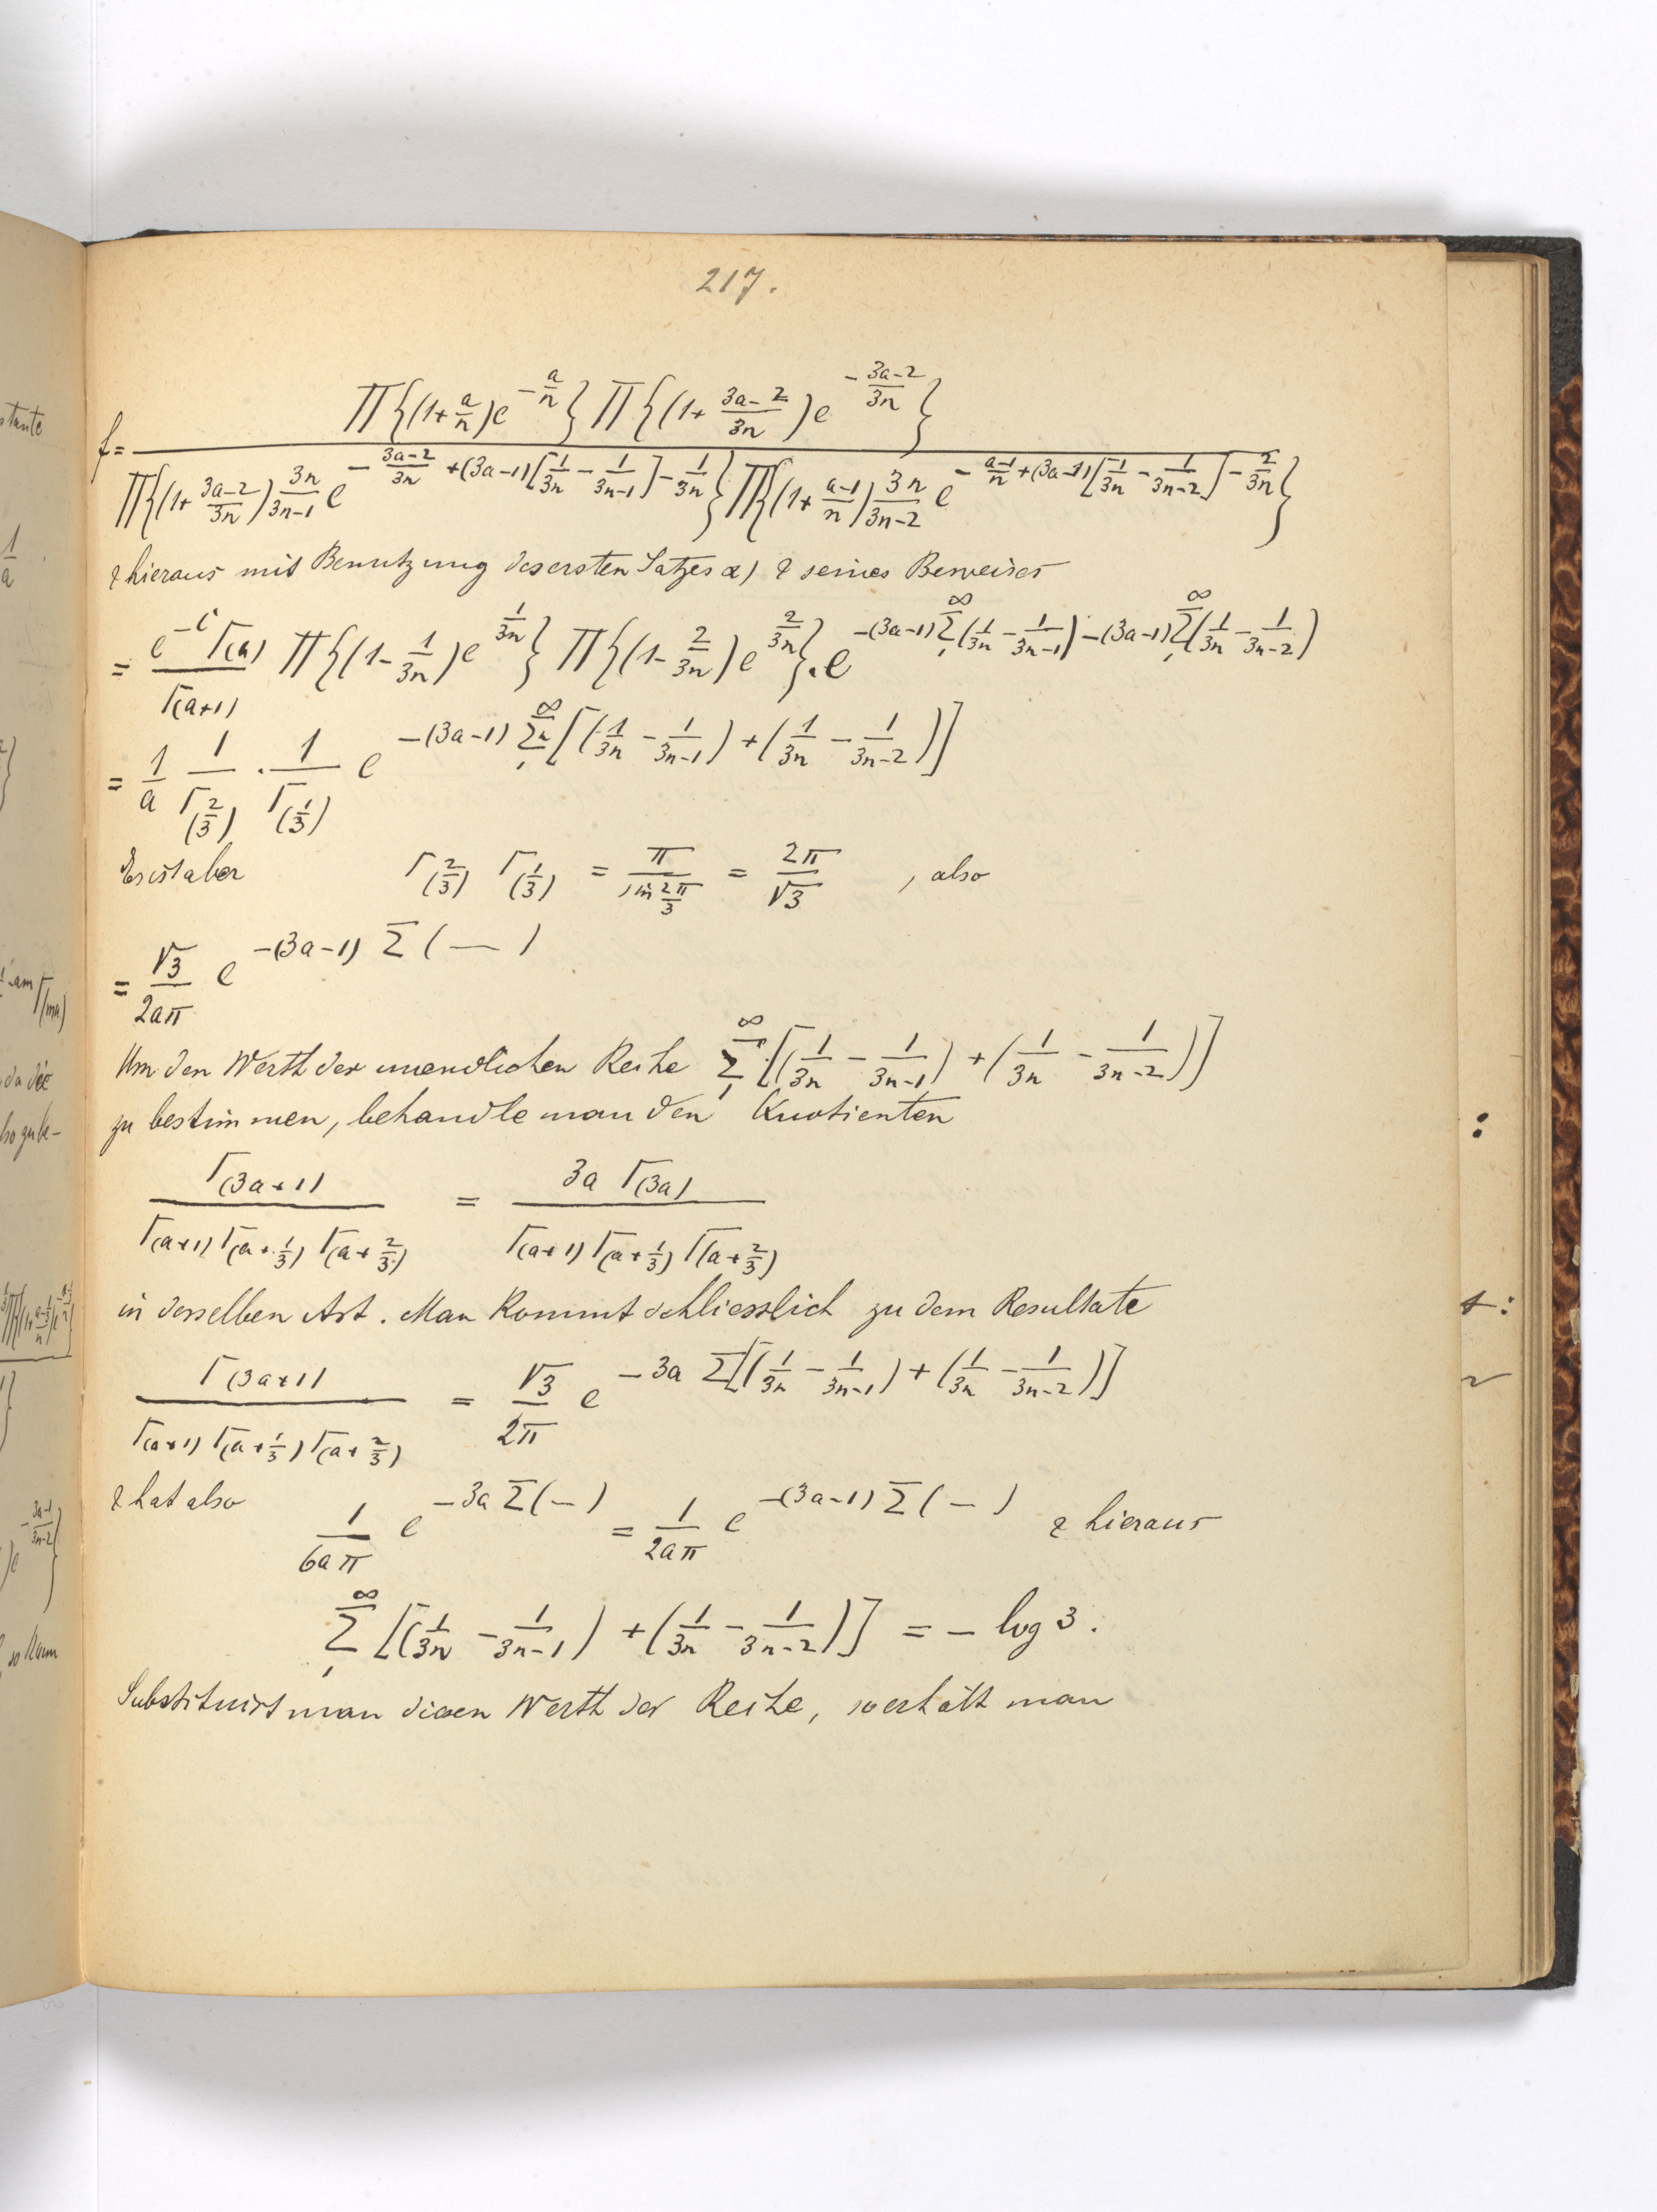 217.
f = \frac{\prod\{(1+\frac{a}{n})e^{-\frac{a}{n}}\} \prod\{(1+\frac{3a-2}{3n})e^{-\frac{3a-2}{3n}}\}}{\prod\{(1+\frac{3a-2}{3n})\frac{3n}{3n-1} e^{-\frac{3a-2}{3n}+(3a-1)[\frac{1}{3n}-\frac{1}{3n-1}]-\frac{1}{3n}}\} \prod\{(1+\frac{a-1}{n})\frac{3n}{3n-2} e^{-\frac{a-1}{n}+(3a-1)[\frac{1}{3n}-\frac{1}{3n-2}]-\frac{2}{3n}}\}}
& hieraus mit Benutzung des ersten Satzes α) & seines Beweises
= \frac{e^{-C}Γ(a)}{Γ(a+1)} \prod\{(1-\frac{1}{3n})e^{\frac{1}{3n}}\} \prod\{(1-\frac{2}{3n})e^{\frac{2}{3n}}\} . e^{-(3a-1)\sum_1^∞(\frac{1}{3n}-\frac{1}{3n-1})-(3a-1)\sum_1^∞(\frac{1}{3n}-\frac{1}{3n-2})}
= \frac{1}{a} \frac{1}{Γ(\frac{2}{3})} . \frac{1}{Γ(\frac{1}{3})} e^{-(3a-1)\sum_1^∞[(\frac{1}{3n}-\frac{1}{3n-1})+(\frac{1}{3n}-\frac{1}{3n-2})]}
Es ist aber Γ(\frac{2}{3}) Γ(\frac{1}{3}) = \frac{π}{\sin\frac{2π}{3}} = \frac{2π}{√3} , also
= \frac{√3}{2aπ} e^{-(3a-1) Σ(—)}
Um den Werth der unendlichen Reihe \sum_1^∞[(\frac{1}{3n}-\frac{1}{3n-1})+(\frac{1}{3n}-\frac{1}{3n-2})]
zu bestimmen, behandle man den Kuotienten
\frac{Γ(3a+1)}{Γ(a+1) Γ(a+\frac{1}{3}) Γ(a+\frac{2}{3})} = \frac{3a Γ(3a)}{Γ(a+1) Γ(a+\frac{1}{3}) Γ(a+\frac{2}{3})}
in derselben Art. Man kommt schliesslich zu dem Resultate
\frac{Γ(3a+1)}{Γ(a+1) Γ(a+\frac{1}{3}) Γ(a+\frac{2}{3})} = \frac{√3}{2π} e^{-3a Σ[(\frac{1}{3n}-\frac{1}{3n-1})+(\frac{1}{3n}-\frac{1}{3n-2})]}
& hat also \frac{1}{6aπ} e^{-3a Σ(—)} = \frac{1}{2aπ} e^{-(3a-1) Σ(—)} & hieraus
\sum_1^∞[(\frac{1}{3n}-\frac{1}{3n-1})+(\frac{1}{3n}-\frac{1}{3n-2})] = - log 3.
Substituirt man diesen Werth der Reihe, so erhält man